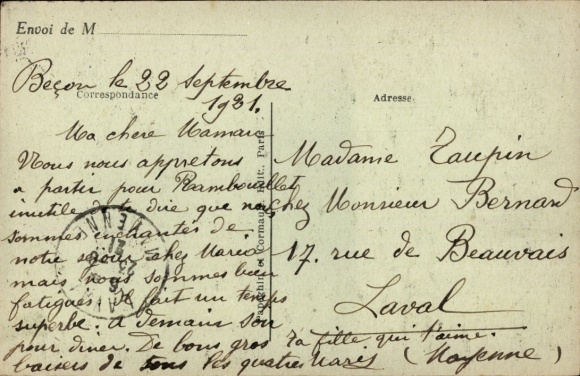 Envoi de M
Beçon le 22 Septembre
1931.
Correspondance
Adresse
Ma chère Maman
Nous nous appretons
a partir pour Rambouillet
inutile de te dire que nous
sommes enchantés de
notre séjour chez Maria
mais nous sommes bien
fatigués. Il fait un temps
superbe. a demain soir
pour diner. De bons gros
baisers de tous les quatre
Ta fille qui t'aime.
Madame Taupin
chez Monsieur Bernard
17. rue de Beauvais
Laval
(Mayenne)
et Cormault, Edit., Paris